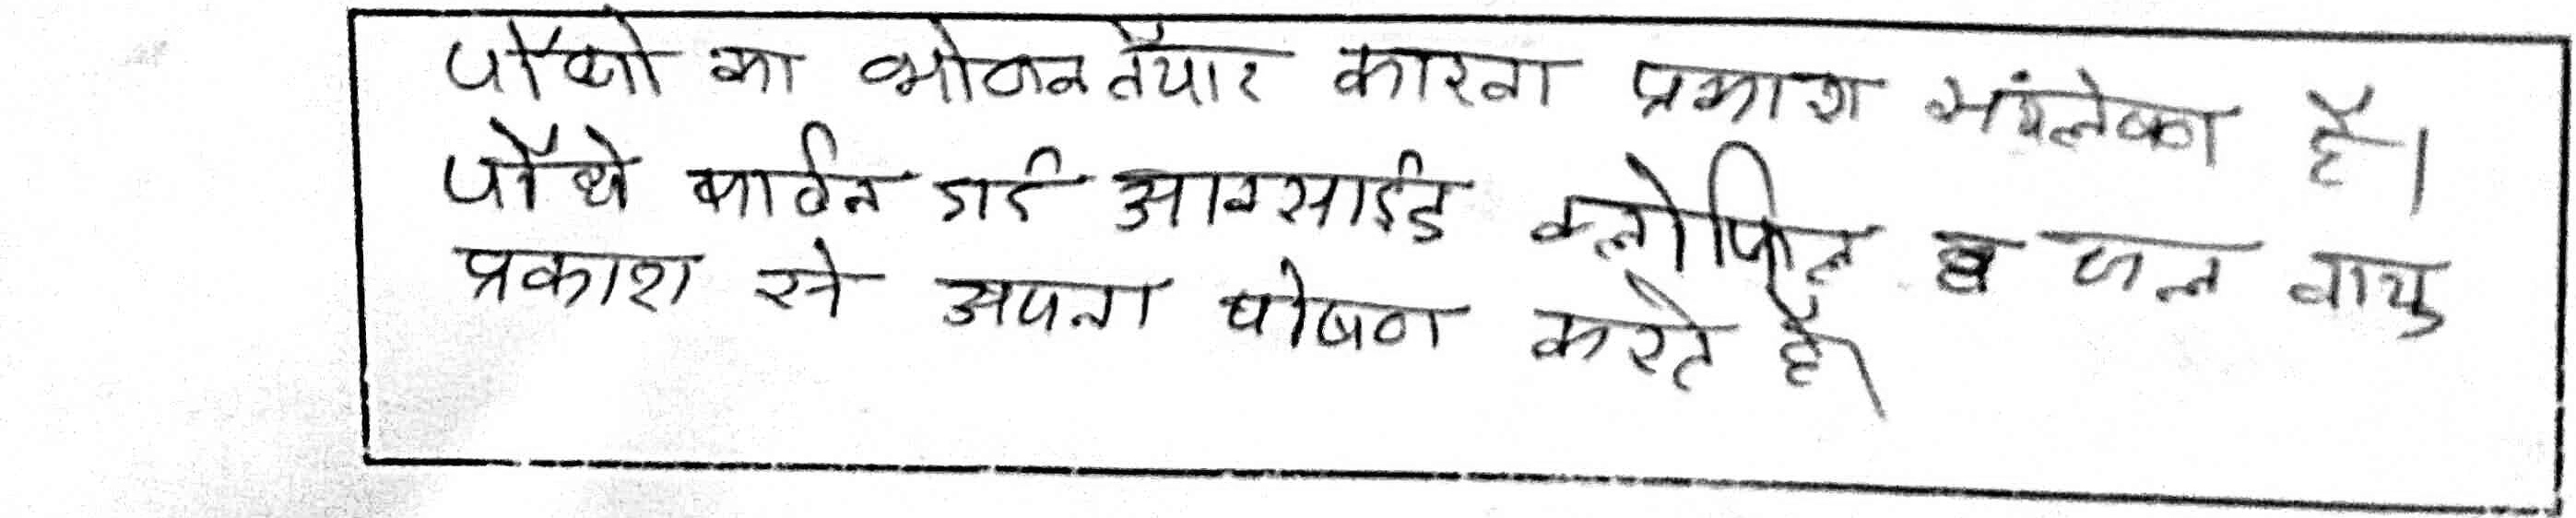 पौधो का भोजन तैयार कारना प्रकाश संश्लेषण है।
पौधे कार्बन डाई आक्साईड क्लोफिल व जल वायु
प्रकाश से अपना पोषण करते है।